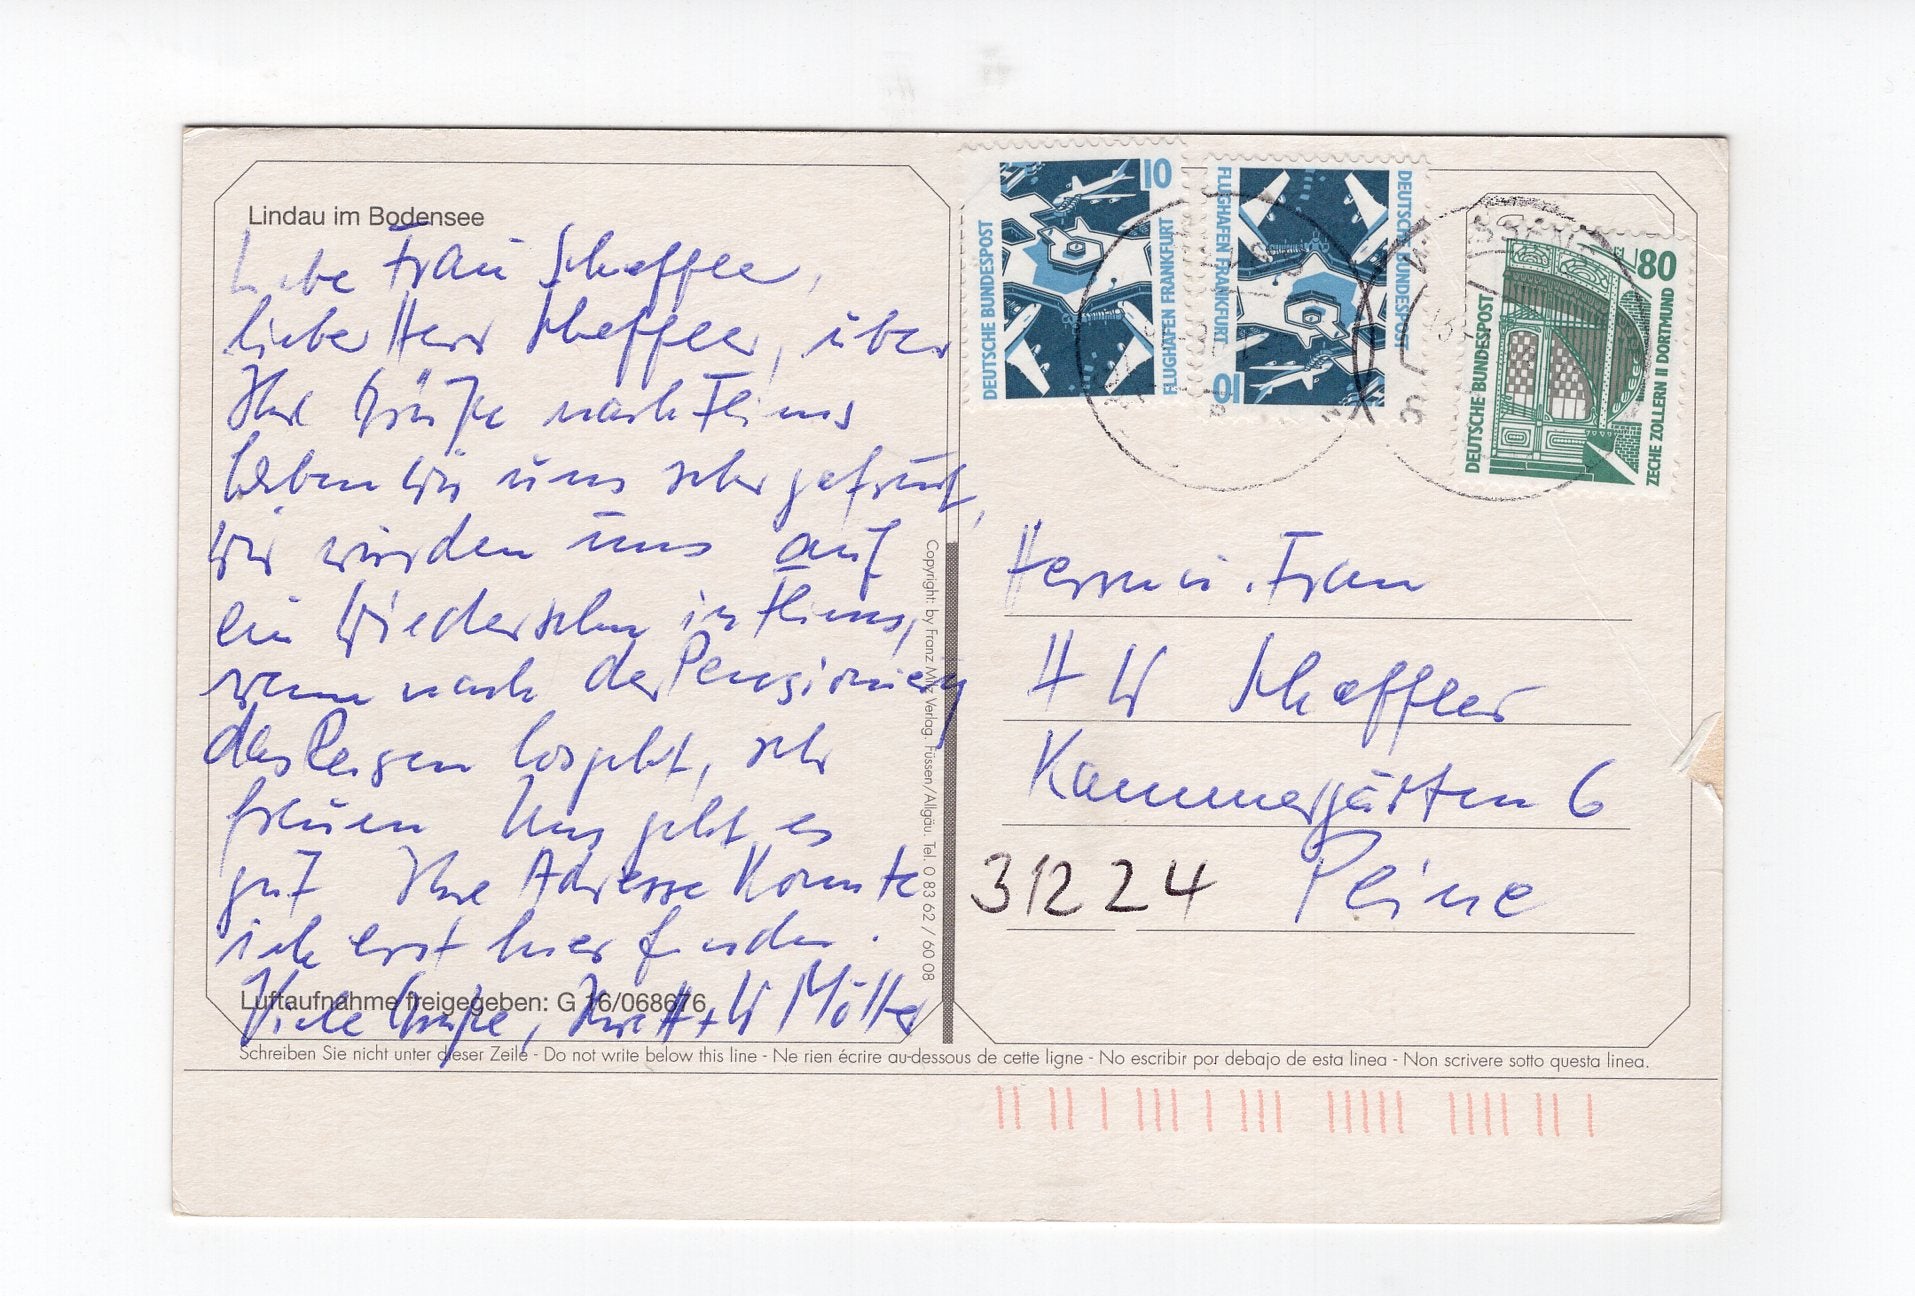 Lindau im Bodensee
Liebe Frau Scheffler,
lieber Herr Scheffler, über
Ihre Grüße nach Flims
haben wir uns sehr gefreut,
wir würden uns auf
ein Wiedersehn in Flims,
wenn nach der Pensionierg
das Reisen losgeht, sehr
freuen Uns geht es
gut Ihre Adresse konnte
ich erst hier finden.
Luftaufnahme freigegeben: G 16/068676
Viele Grüße, Ihre H + W
Copyright: by Franz Milz Verlag, Füssen/Allgäu. Tel. 0 83 62 / 60 08
10
DEUTSCHE BUNDESPOST
FLUGHAFEN FRANKFURT
10
DEUTSCHE BUNDESPOST
FLUGHAFEN FRANKFURT
80
DEUTSCHE BUNDESPOST
ZECHE ZOLLERN II DORTMUND
Herrn u. Frau
H W Scheffler
Kammergärten 6
31224 Peine
Schreiben Sie nicht unter dieser Zeile - Do not write below this line - Ne rien écrire au-dessous de cette ligne - No escribir por debajo de esta linea - Non scrivere sotto questa linea.